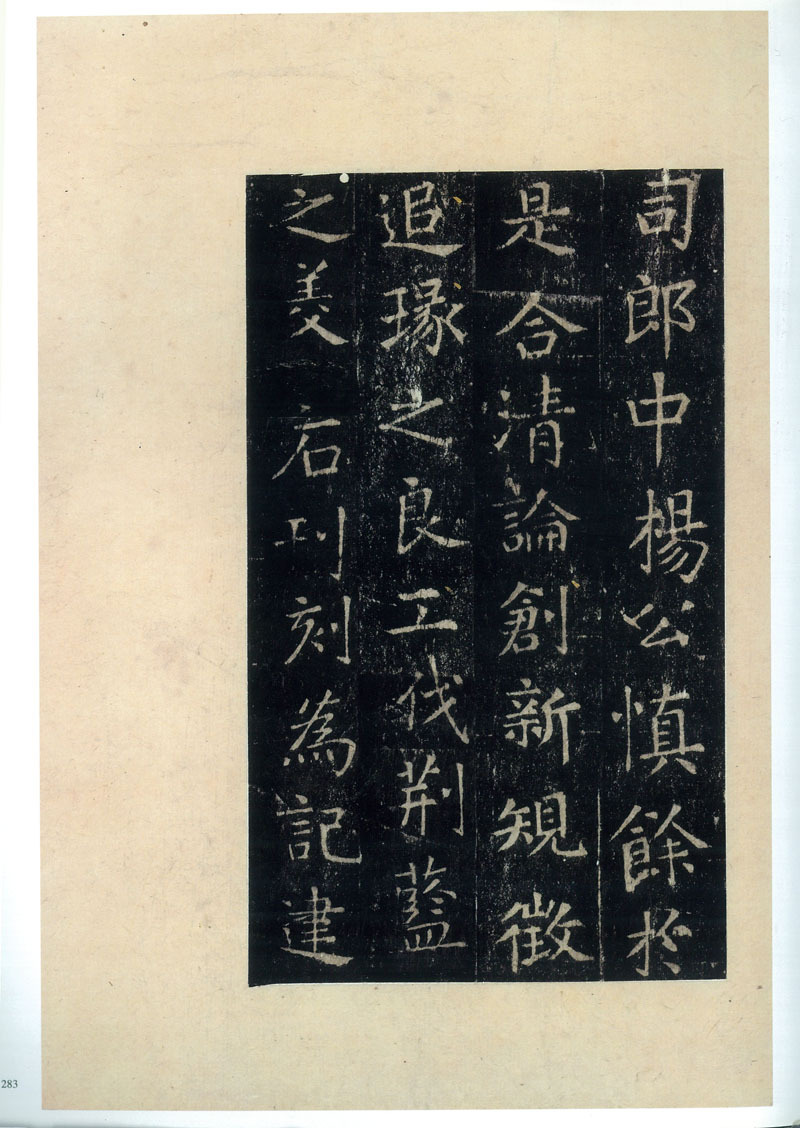 司郎中楊公慎餘於
是合清論創新規徵
追瑑之良工伐荆藍
之美石刊刻為記建
283